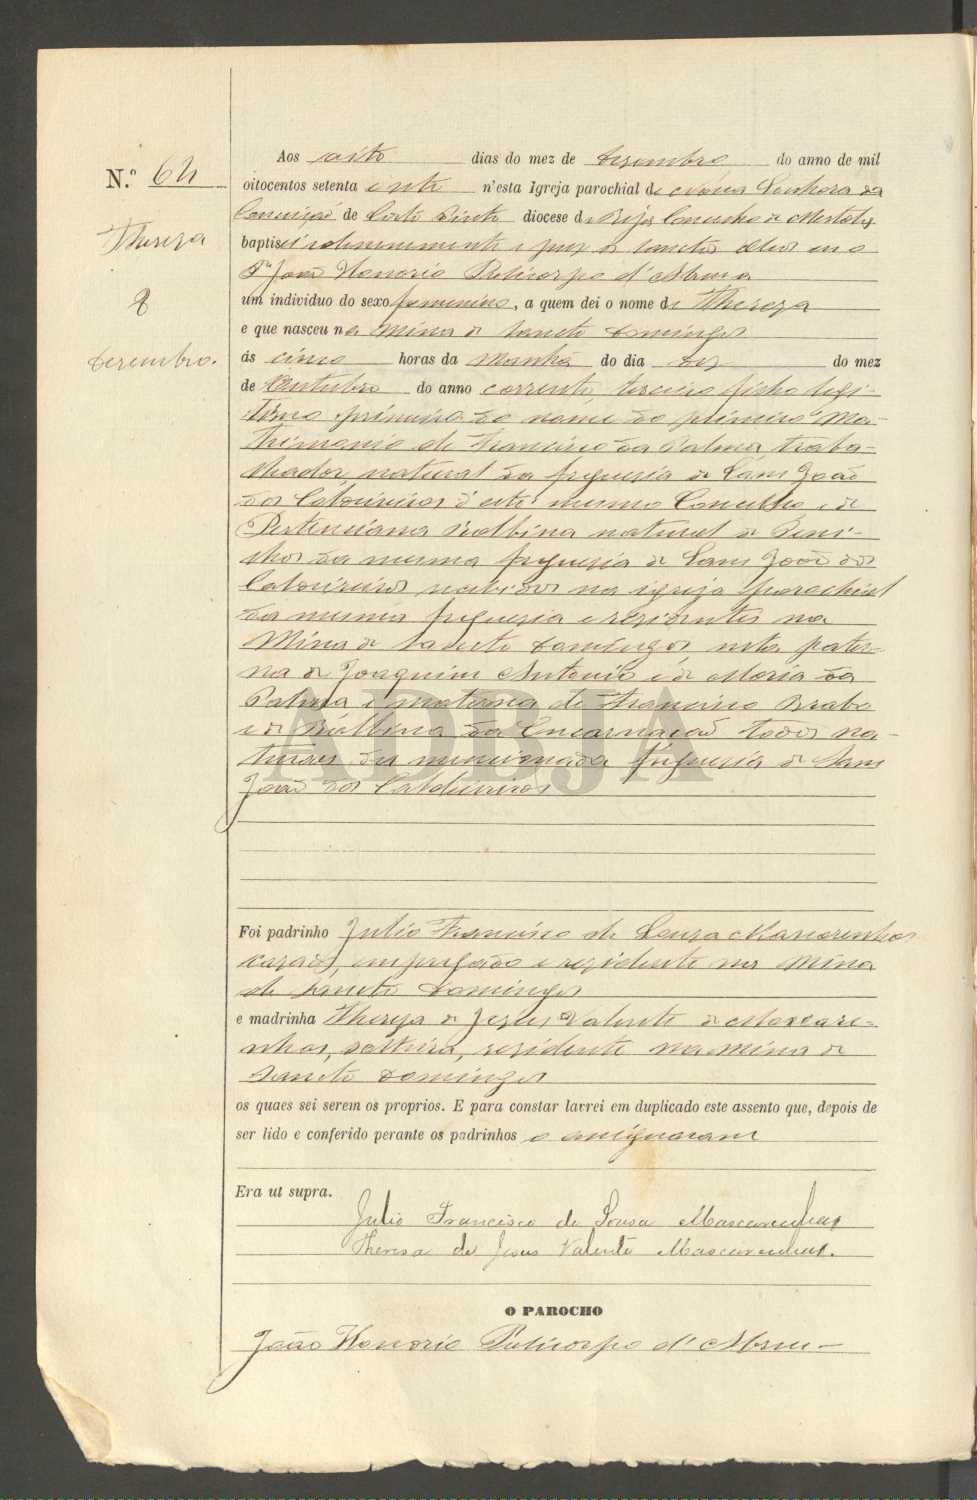 N.º 64
Thereza
8
Dezembro.
Aos oito dias do mez de Dezembro do anno de mil
oitocentos setenta e oito n'esta Igreja parochial de Nossa Senhora da
Conceição de Corte Pinto diocese de Beja Concelho de Mertola
baptisei solemnemente e puz os sanctos oleos eu o
Pe João Honorio Policarpo d'Abreu
um individuo do sexo femenino, a quem dei o nome de Thereza
e que nasceu na Mina de Sancto Domingos
ás cinco horas da Manhã do dia dez do mez
de Outubro do anno corrente, terceiro filho legi-
timo primeira do nome do primeiro Ma-
trimonio de Francisco da Palma, traba-
lhador, natural da freguesia de Sam João
dos Caldeireiros d'este mesmo Concelho e de
Balbina natural de
da mesma freguesia de Sam João dos
Caldeireiros recebidos na igreja parochial
da mesma freguesia e residentes na
Mina de Sancto Domingos, neta pater-
na de Joaquim Antonio e de Maria da
Palma e materna de Francisco Brabo
e de Balbina da Encarnação todos na-
turaes da mencionada freguesia de Sam
João dos Caldeireiros
ADBJA
Foi padrinho Julio Francisco de Souza Mascarenhas
casado, empregado e residente na Mina
de Sancto Domingos
e madrinha Thereza de Jezus Valente de Mascare-
nhas, solteira, rezidente na Mina de
Sancto Domingos
os quaes sei serem os proprios. E para constar lavrei em duplicado este assento que, depois de
ser lido e conferido perante os padrinhos o assignaram
Era ut supra.
Julio Francisco de Sousa Mascarenhas
Theresa de Jesus Valente Mascarenhas.
O PAROCHO
João Honorio Policarpo d'Abreu